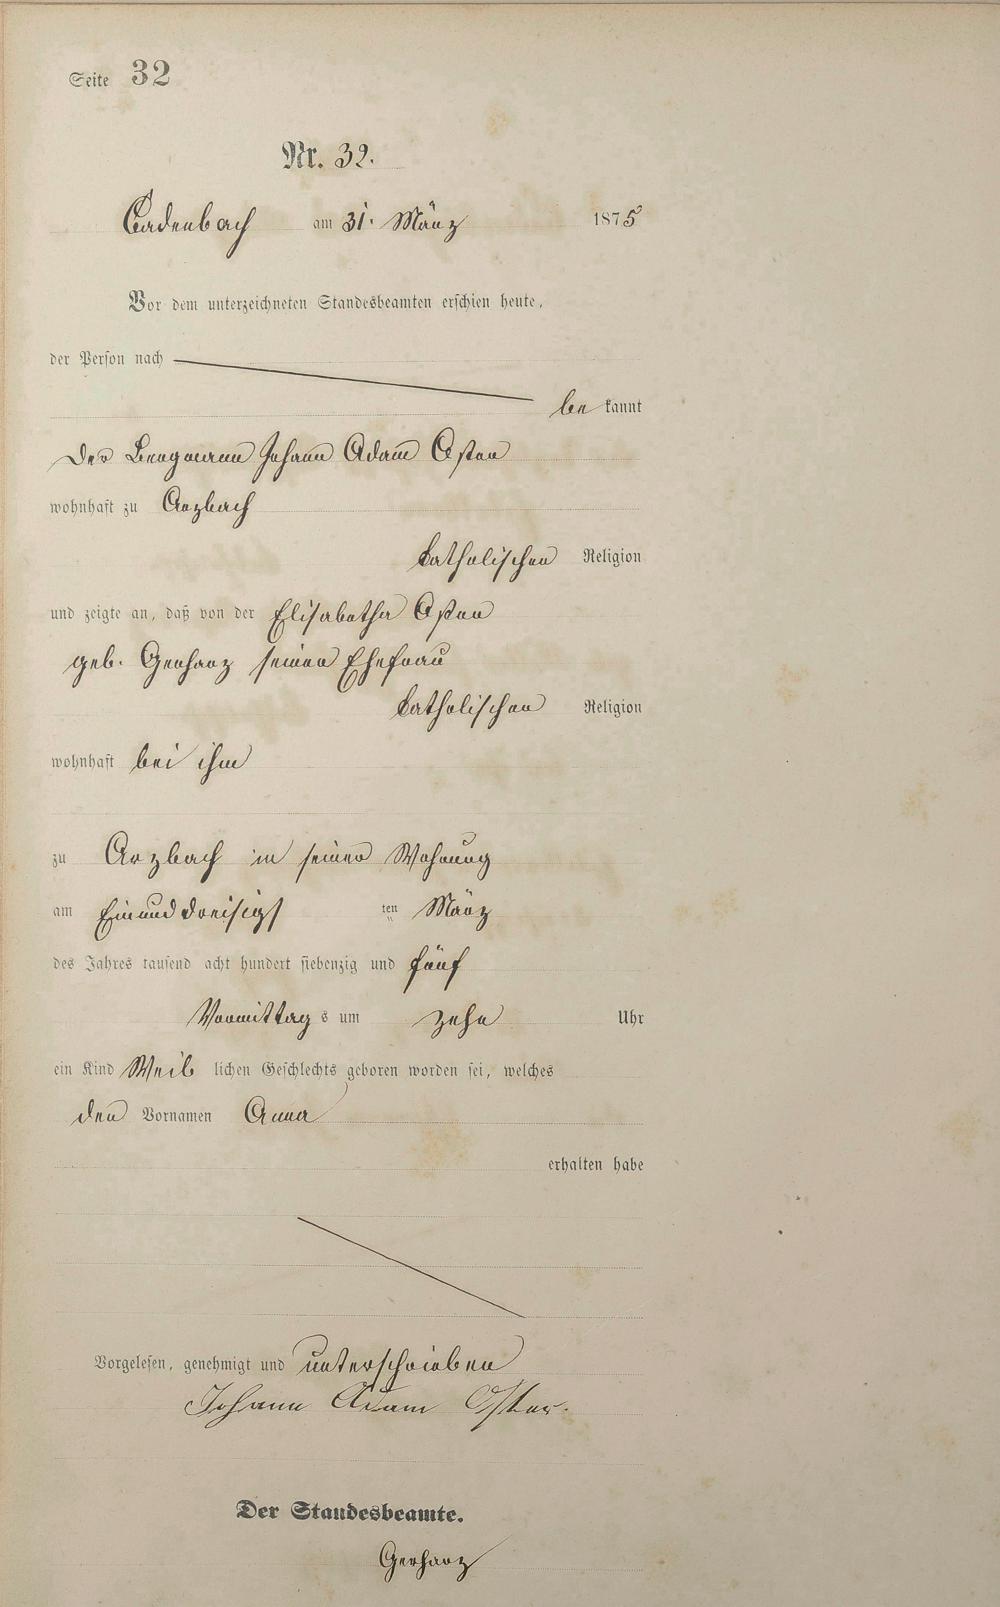 Seite 32
Nr. 32.
Cadenbach am 31. März 1875
Vor dem unterzeichneten Standesbeamten erschien heute,
der Person nach
be kannt
der Bergmann Johann Adam Oster
wohnhaft zu Arzbach
katholischer Religion
und zeigte an, daß von der Elisabetha Oster
geb. Gerharz seiner Ehefrau
katholischer Religion
wohnhaft bei ihm
zu Arzbach in seiner Wohnung
am Einunddreisigs ten März
des Jahres tausend acht hundert siebenzig und fünf
Vormittag s um zehn Uhr
ein Kind Weib lichen Geschlechts geboren worden sei, welches
den Vornamen Anna
erhalten habe
Vorgelesen, genehmigt und unterschrieben
Johann Adam Oster.
Der Standesbeamte.
Gerharz